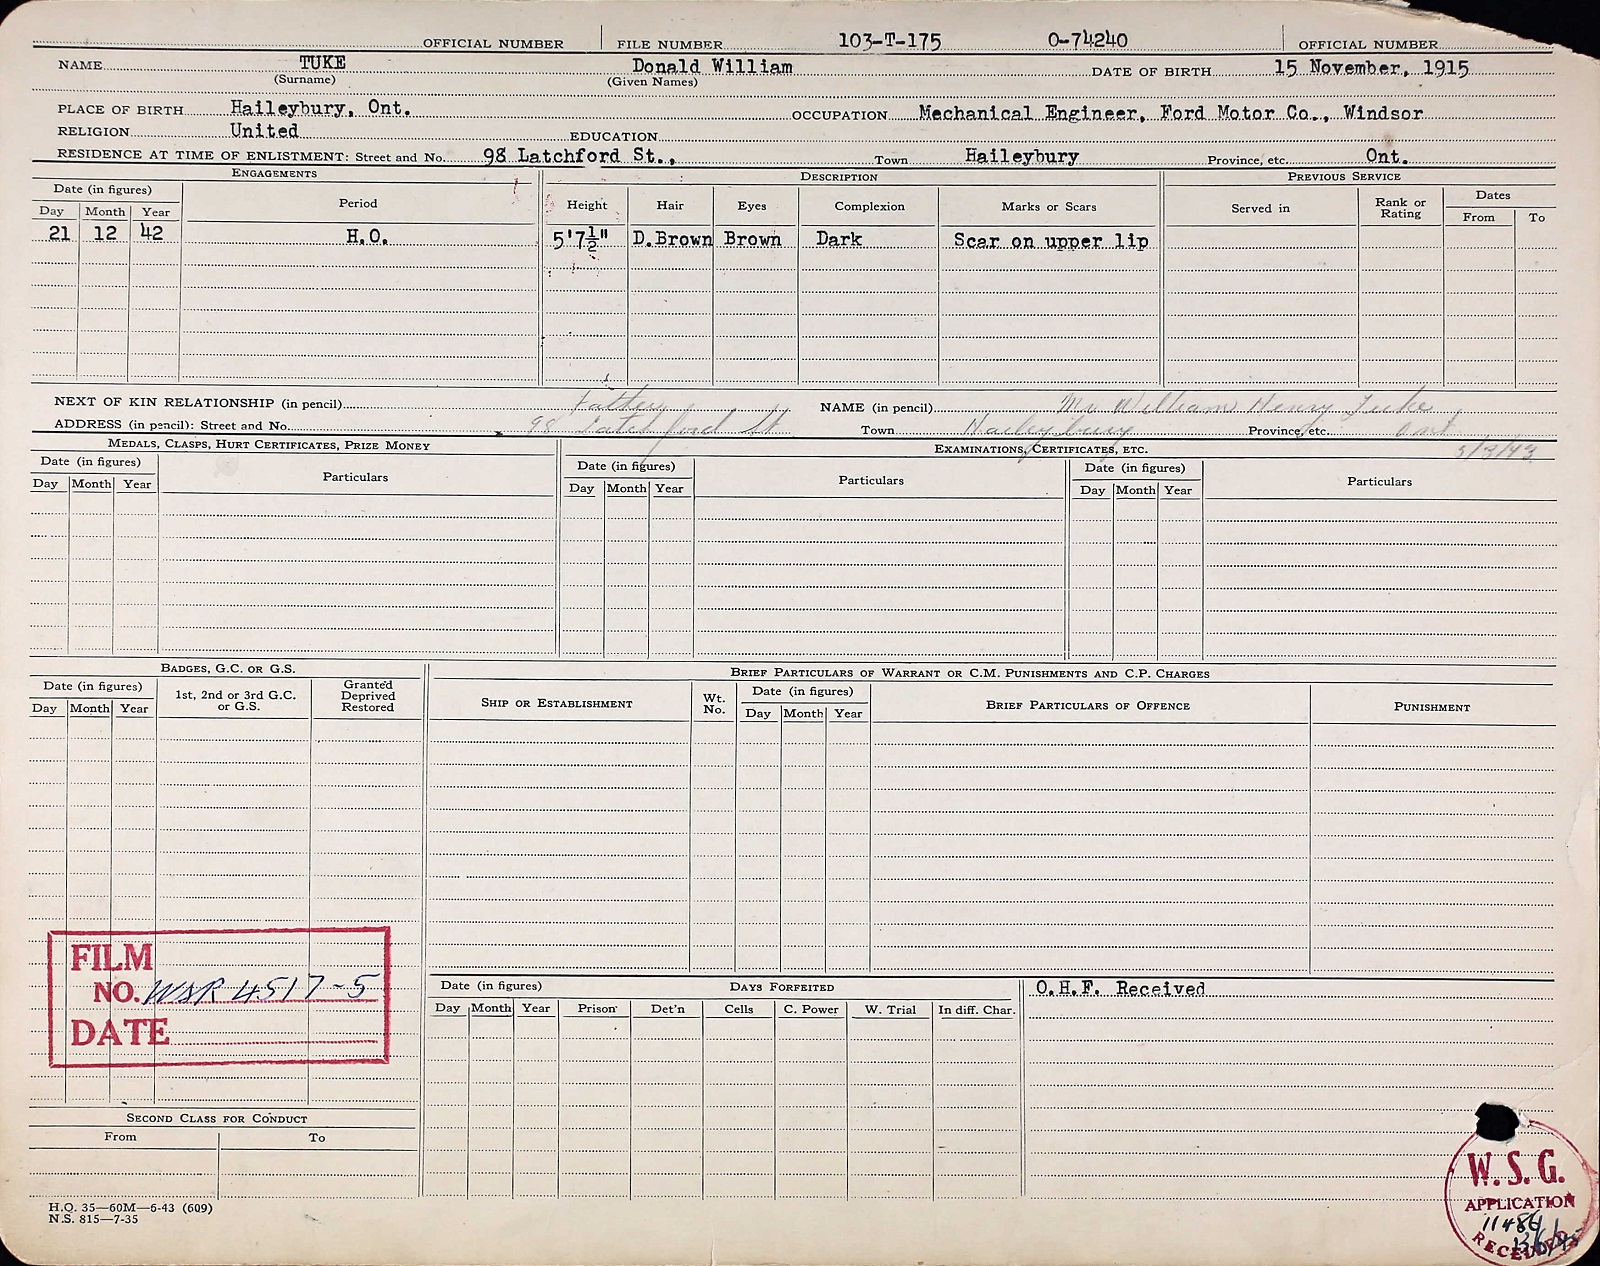 OFFICIAL NUMBER FILE NUMBER 103-T-175 O-74240 OFFICIAL NUMBER
NAME TUKE Donald William DATE OF BIRTH 15 November, 1915
(Surname) (Given Names)
PLACE OF BIRTH Haileybury, Ont. OCCUPATION Mechanical Engineer, Ford Motor Co., Windsor
RELIGION United EDUCATION
RESIDENCE AT TIME OF ENLISTMENT: Street and No. 98 Latchford St., Town Haileybury Province, etc. Ont.
ENGAGEMENTS DESCRIPTION PREVIOUS SERVICE
Date (in figures) Period Height Hair Eyes Complexion Marks or Scars Served in Rank or Rating Dates
Day Month Year From To
21 12 42 H.O. 5'7½" D.Brown Brown Dark Scar on upper lip
NEXT OF KIN RELATIONSHIP (in pencil) Father NAME (in pencil) Mr William Henry Tuke
ADDRESS (in pencil): Street and No. 98 Latchford St Town Haileybury Province, etc. Ont
MEDALS, CLASPS, HURT CERTIFICATES, PRIZE MONEY EXAMINATIONS, CERTIFICATES, ETC. 5/3/43
Date (in figures) Particulars Date (in figures) Particulars Date (in figures) Particulars
Day Month Year Day Month Year Day Month Year
BADGES, G.C. OR G.S. BRIEF PARTICULARS OF WARRANT OR C.M. PUNISHMENTS AND C.P. CHARGES
Date (in figures) 1st, 2nd or 3rd G.C. or G.S. Granted Deprived Restored SHIP OR ESTABLISHMENT Wt. No. Date (in figures) BRIEF PARTICULARS OF OFFENCE PUNISHMENT
Day Month Year Day Month Year
FILM
NO. WSR 4517-5
DATE
Date (in figures) DAYS FORFEITED O.H.F. Received
Day Month Year Prison Det'n Cells C. Power W. Trial In diff. Char.
SECOND CLASS FOR CONDUCT
From To
W.S.G.
APPLICATION
11486
RECEIVED
H.Q. 35—60M—6-43 (609)
N.S. 815—7-35